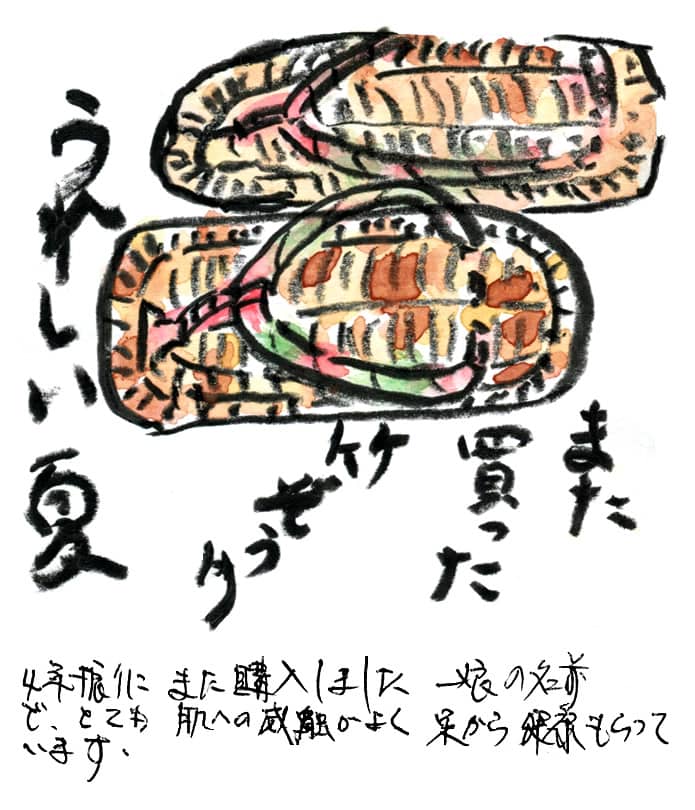 また
買った
竹
ぞうり
うれしい夏
4年振りに また購入しました 娘の名前
で、とても 肌への感触がよく 足から
もらって
います。